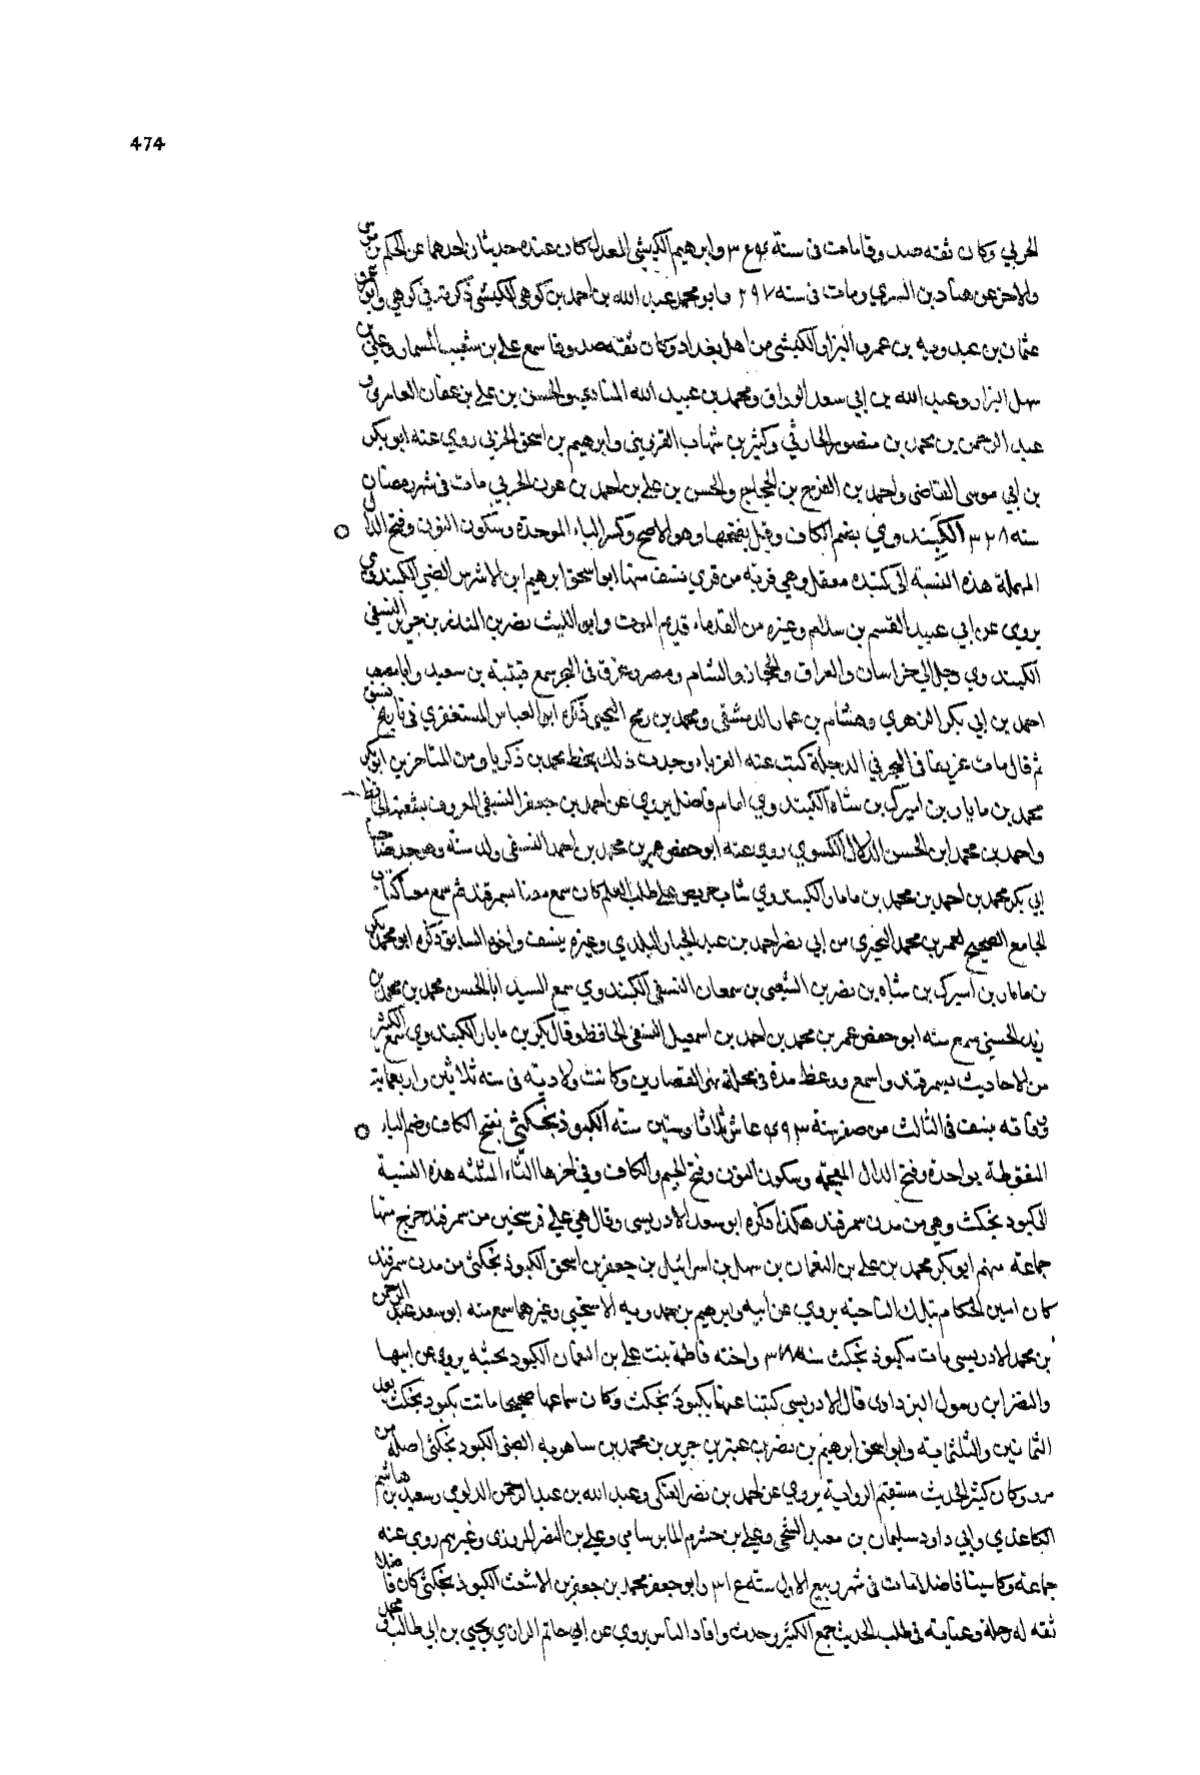 474
الحربي وكان ثقه صدوقا مات فى سنة ٣٤٦ وابرهيم الكبشي المعدل كان عنده حديثان احدهما عن الحكم بن موسى
والاخر عن هناد بن السري ومات فى سنه ٢٩٧ وابو محمد عبد الله بن احمد بن كوهى الكبشي ذكرته في كوهي وابو عمرو
عثمان بن عبدويه بن عمرو البزاز الكبشى من اهل بغداد وكان ثقه صدوقا سمع علي بن شعيب السمسار وعلي بن
سهل البزاز وعبد الله بن ابي سعد الوراق ومحمد بن عبيد الله المنادي والحسن بن علي بن عفان العامري و
عبد الرحمن بن محمد بن منصور الحارثي وكثير بن شهاب القزويني وابرهيم بن اسحق الحربي روي عنه ابو بكر
بن ابي موسى القاضى واحمد بن الفرج بن الحجاج والحسن بن علي بن احمد بن عون الحربي مات فى شهر رمضان
سنه ٣٢٨ الكبندوي بضم الكاف وقيل بفتحها وهو الاصح وكسر الباء الموحدة وسكون النون وفتح الدال
المهملة هذه النسبة الى كبنده معقل وهي قرية من قري نسف منها ابو اسحق ابرهيم ابن الاشرس الضبي الكبندوي
يروي عن ابي عبيد القسم بن سلام وغيره من القدماء قديم الموت وابو الليث نصر بن المنذر بن جرير النسفي
الكبندوي رحل الي خراسان والعراق والحجاز والشام ومصر وغرق فى البحر سمع قتيبة بن سعيد وابا مصعب
احمد بن ابي بكر الزهري وهشام بن عمار الدمشقى ومحمد بن رمح التجيبى ذكره ابو العباس المستغفري فى تاريخ نسف
ثم قال مات غريقا فى البحر في الدجلة كتب عنه الغرباء وجدت ذلك بخط محمد بن زكريا ومن المتاخرين ابو بكر
محمد بن مايان بن اميرك بن شاه الكبندوي امام فاضل يروي عن احمد بن جعفر النسفى المعروف
واحمد بن محمد ابن الحسن الدلال الكسوي روي عنه ابو حفص عمر بن محمد بن احمد النسفى
ابي بكر محمد بن احمد بن محمد بن مامان الكبندوي شاب حريص علي طلب العلم كان سمع معنا بسمرقند ثم سمع معنا كتاب
الجامع الصحيح لعمر بن محمد البجيري من ابي نصر احمد بن عبد الجبار البلدي وغيره بنسف واخوه السابق ذكره ابو محمد بكر
بن مامان بن اميرك بن شاه بن نصر بن بن سمعان النسفى الكبندوي سمع السيد ابا الحسن محمد بن محمد بن
زيد الحسيني سمع منه ابو حفص عمر بن محمد بن احمد بن اسمعيل النسفى الحافظ وقال بكر بن مايان الكبندوي سمع الكثير
من الاحاديث بسمرقند واسمع ووعظ مدة فى محلة نهر القصارين وكانت ولادته فى سنه ثلاثين واربعماية
ووفاته بنسف فى الثالث من صفر سنة ٤٩٣ عاش ثلاثا وستين سنه الكبوذنجكثي بفتح الكاف وضم الباء
المنقوطة بواحدة وفتح الذال المعجمة وسكون النون وفتح الجيم والكاف وفى اخرها الثاء المثلثه هذه النسبة
الى كبوذنجكث وهي من مدن سمرقند هكذا ذكره ابو سعد الادريسى وقال هي علي فرسخين من سمرقند خرج منها
جماعة منهم ابو بكر محمد بن علي بن النعمان بن سهل بن اسرائيل بن جعفر بن اسحق الكبوذنجكثى من مدن سمرقند
كان امين الحكام بتلك الناحيه يروي عن ابيه وابرهيم بن حمدويه الاشتيخني وغيرهما سمع منه ابو سعد عبد الرحمن
بن محمد الادريسى مات بكبوذنجكث سنه واخته فاطمة بنت علي بن النعمان الكبوذنجكثيه يروي عن ابيها
والنضر ابن رسول البزداوى قال الادريسى كتبنا عنها بكبوذنجكث وكان سماعها صحيحا ماتت بكبوذنجكث بعد
الثمانين والثلثمايه وابو اسحق ابرهيم بن نصر بن عنبر بن جرير بن محمد بن ساهويه الضبى الكبوذنجكثى اصله من
مرو وكان كثير الحديث مستقيم الرواية يروي عن احمد بن نصر العتكى وعبد الله بن عبد الرحمن الدارمي وسعيد بن هاشم
الكاغذي وابي داود سليمان بن معبد السنجي وعلي بن خشرم المابرسامي وعلي بن النضر المروزى وغيرهم روي عنه
جماعة وكان سنيا فاضلا مات فى شهر ربيع الاول سنه ٣١٤ وابو جعفر محمد بن جعفر بن الاشعث الكبوذنجكثى كان فاضلا
ثقه له رحلة وعناية فى طلب الحديث جمع الكثير وحدث وافاد الناس يروي عن ابي حاتم الرازي ويحيي بن ابي طالب و محمد